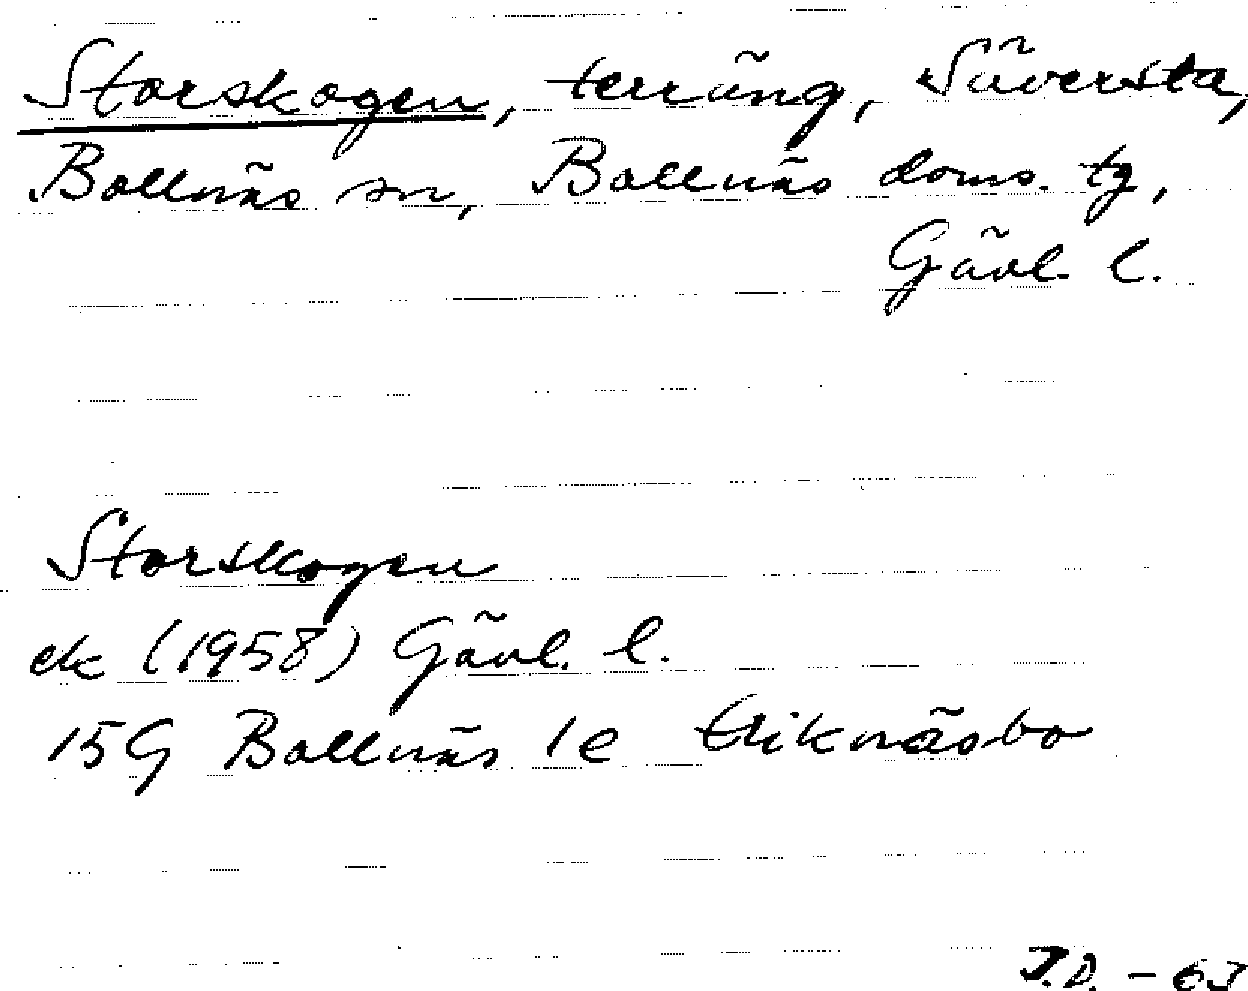 Storskogen, terräng, Säversta,
Bollnäs sn, Bollnäs doms. tg,
Gävl. l.
Storskogen
ek (1958) Gävl. l.
15G Bollnäs 1e Eriknäsbo
J.D. - 63